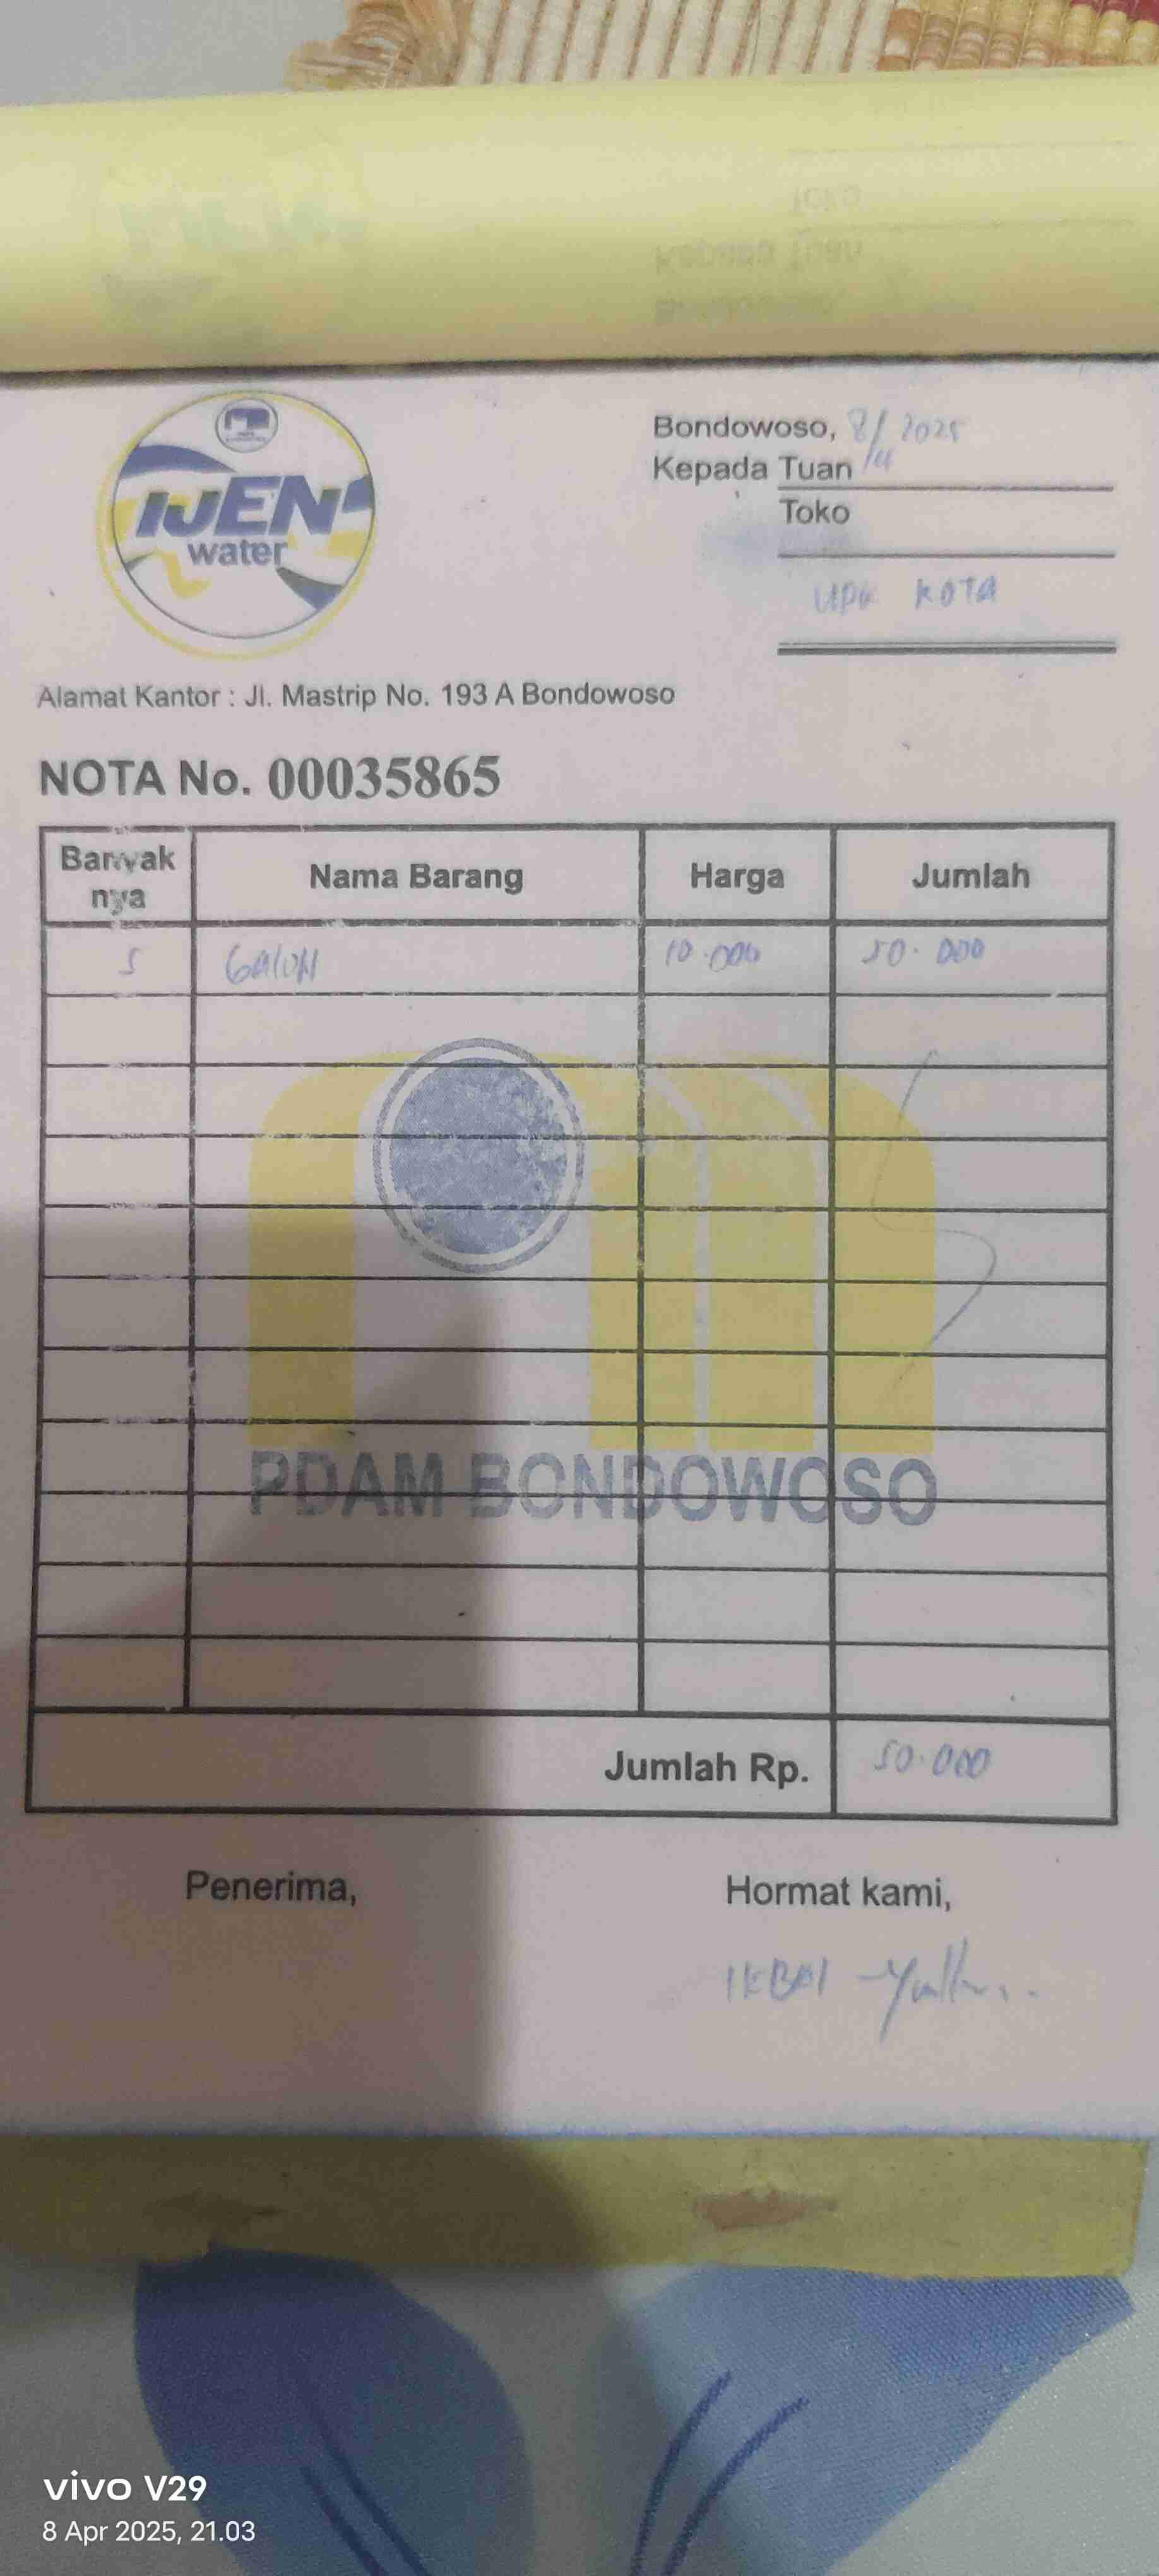 IJEN
water
Bondowoso, 8/4 2025
Kepada Tuan
Toko
UPK KOTA
Alamat Kantor : Jl. Mastrip No. 193 A Bondowoso
NOTA No. 00035865
Banyak nya Nama Barang Harga Jumlah
5 GALON 10.000 50.000
PDAM BONDOWOSO
Jumlah Rp. 50.000
Penerima, Hormat kami,
IKBAl
vivo V29
8 Apr 2025, 21.03